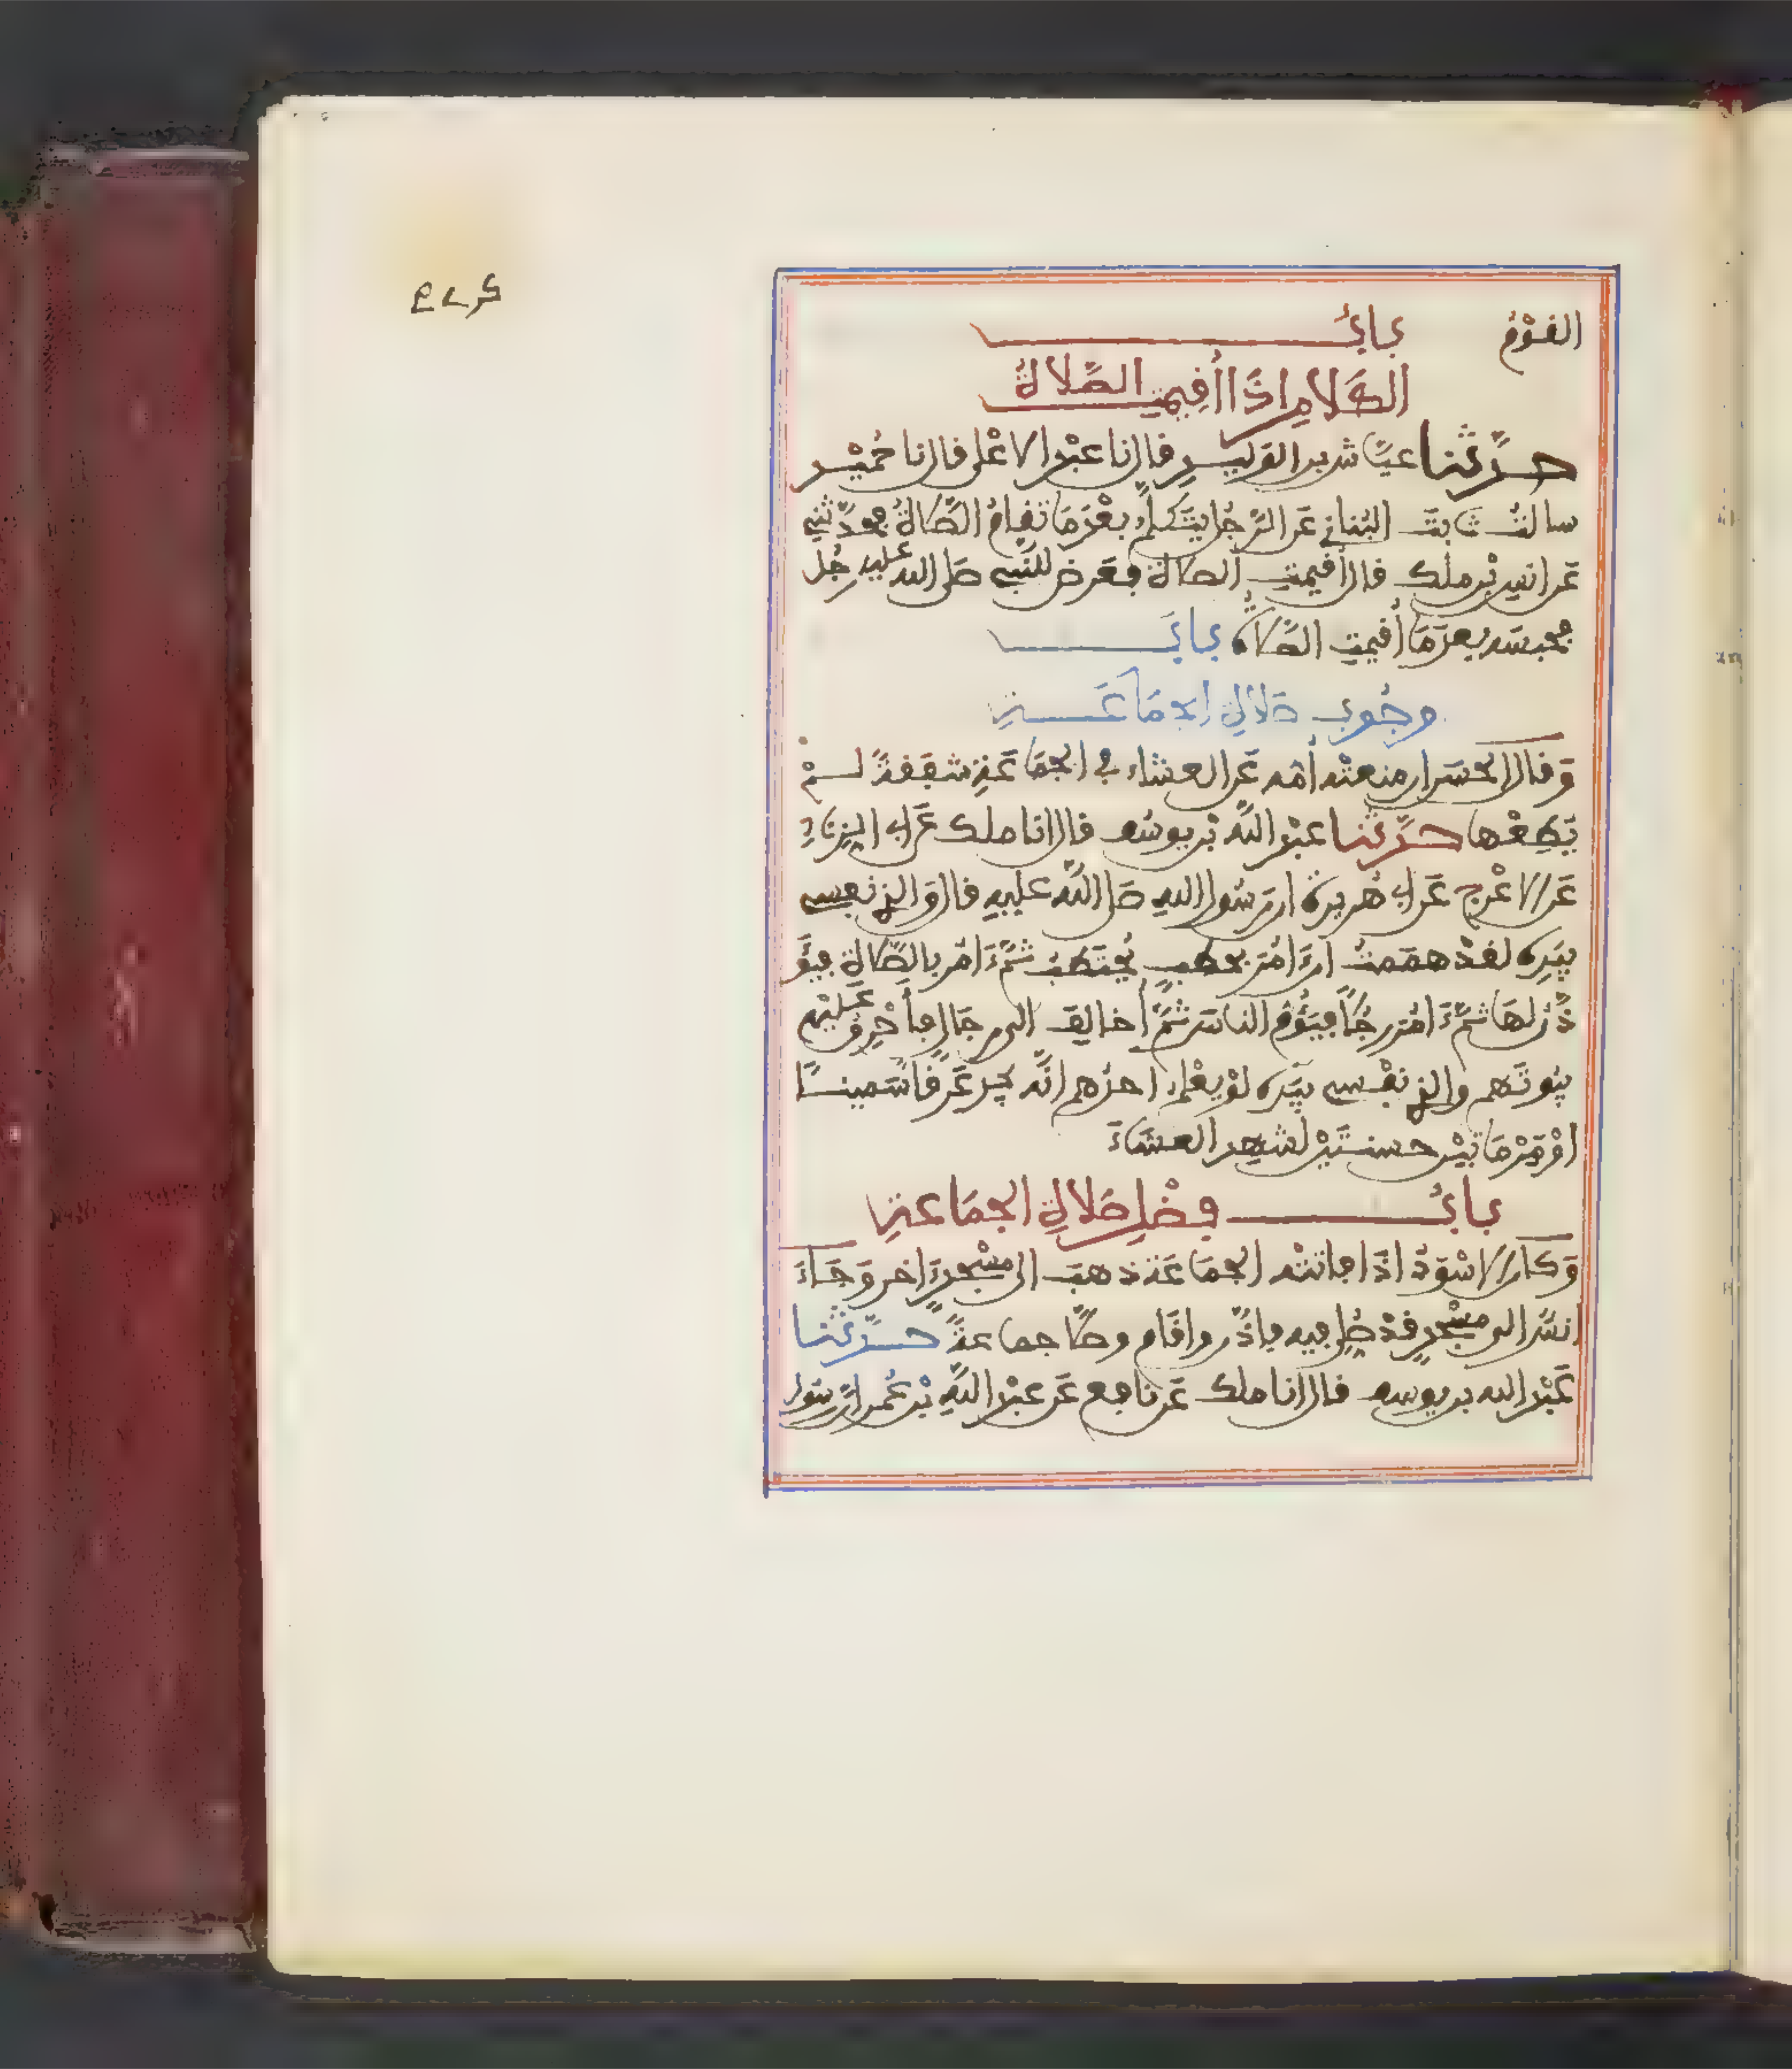 القوم باب
الكلام اذا أقيمت الصلاة
حدثنا عياش بن الوليد قال نا عبد الاعلى قال نا حميد
سالت ثابت البناني عن الرجل يتكلم بعد ما تقام الصلاة فحدثني
عن انس بن ملك قال أقيمت الصلاة فعرض للنبي صلى الله عليه رجل
فحبسه بعد ما أقيمت الصلاة باب
وجوب صلاة الجماعة
وقال الحسن ان منعته أمه عن العشاء في الجماعة شفقة لم
يطعها حدثنا عبد الله بن يوسف قال انا ملك عن ابي الزناد
عن الاعرج عن ابي هريرة ان رسول الله صلى الله عليه قال والذي نفسي
بيده لقد هممت ان ءامر بحطب يحتطب ثم ءامر بالصلاة فيؤ
ذن لها ثم ءامر رجلا فيؤم الناس ثم أخالف الى رجال فأحرق عليهم
بيوتهم والذي نفسي بيده لو يعلم احدهم انه يجد عرقا سمينا
او مرماتين حسنتين لشهد العشاء
باب فضل صلاة الجماعة
وكان الاسود اذا فاتته الجماعة ذهب الى مسجد ءاخر وجاء
انس الى مسجد قد صلي فيه فاذن واقام وصلى جماعة حدثنا
عبد الله بن يوسف قال انا ملك عن نافع عن عبد الله بن عمر ان رسول